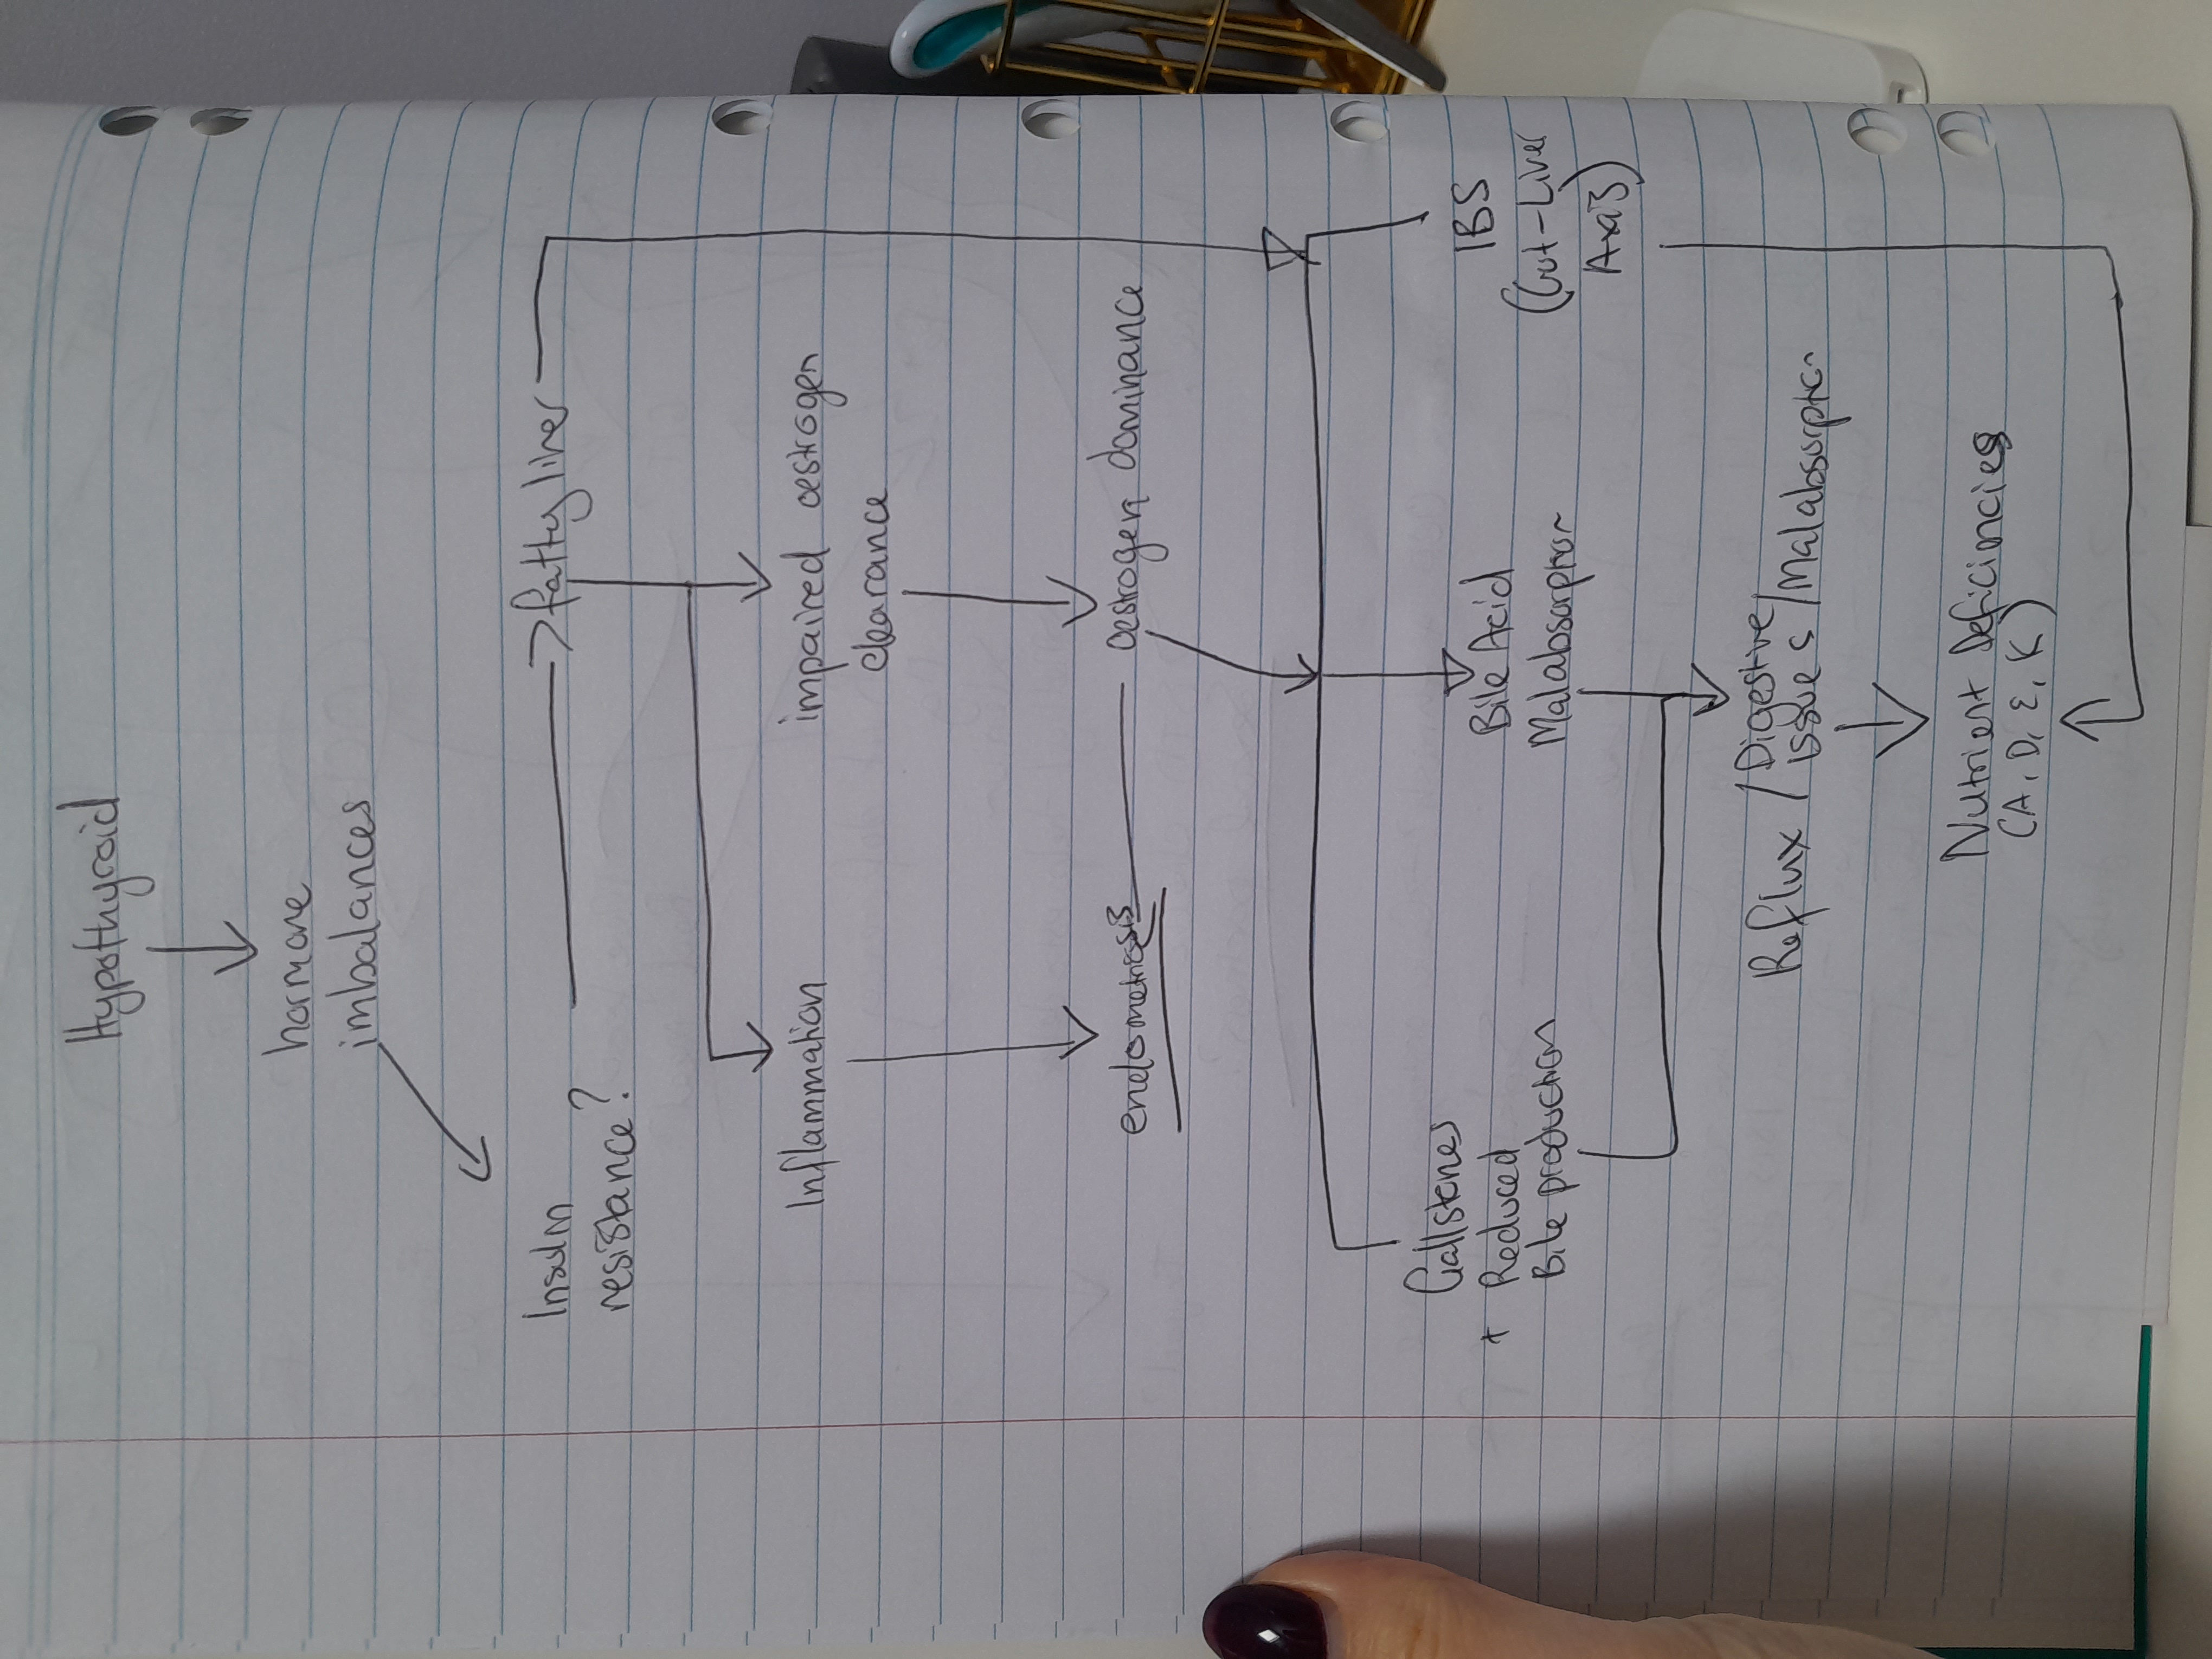 Hypothyroid
hormone
imbalances
Insulin
resistance?
fatty liver
Inflammation
impaired oestrogen
clearance
endometriosis
oestrogen dominance
Gallstones
+ Reduced
Bile production
Bile Acid
Malabsorption
IBS
(Gut-Liver
Axis)
Reflux / Digestive
issues / Malabsorption
Nutrient Deficiencies
(A, D, E, K)